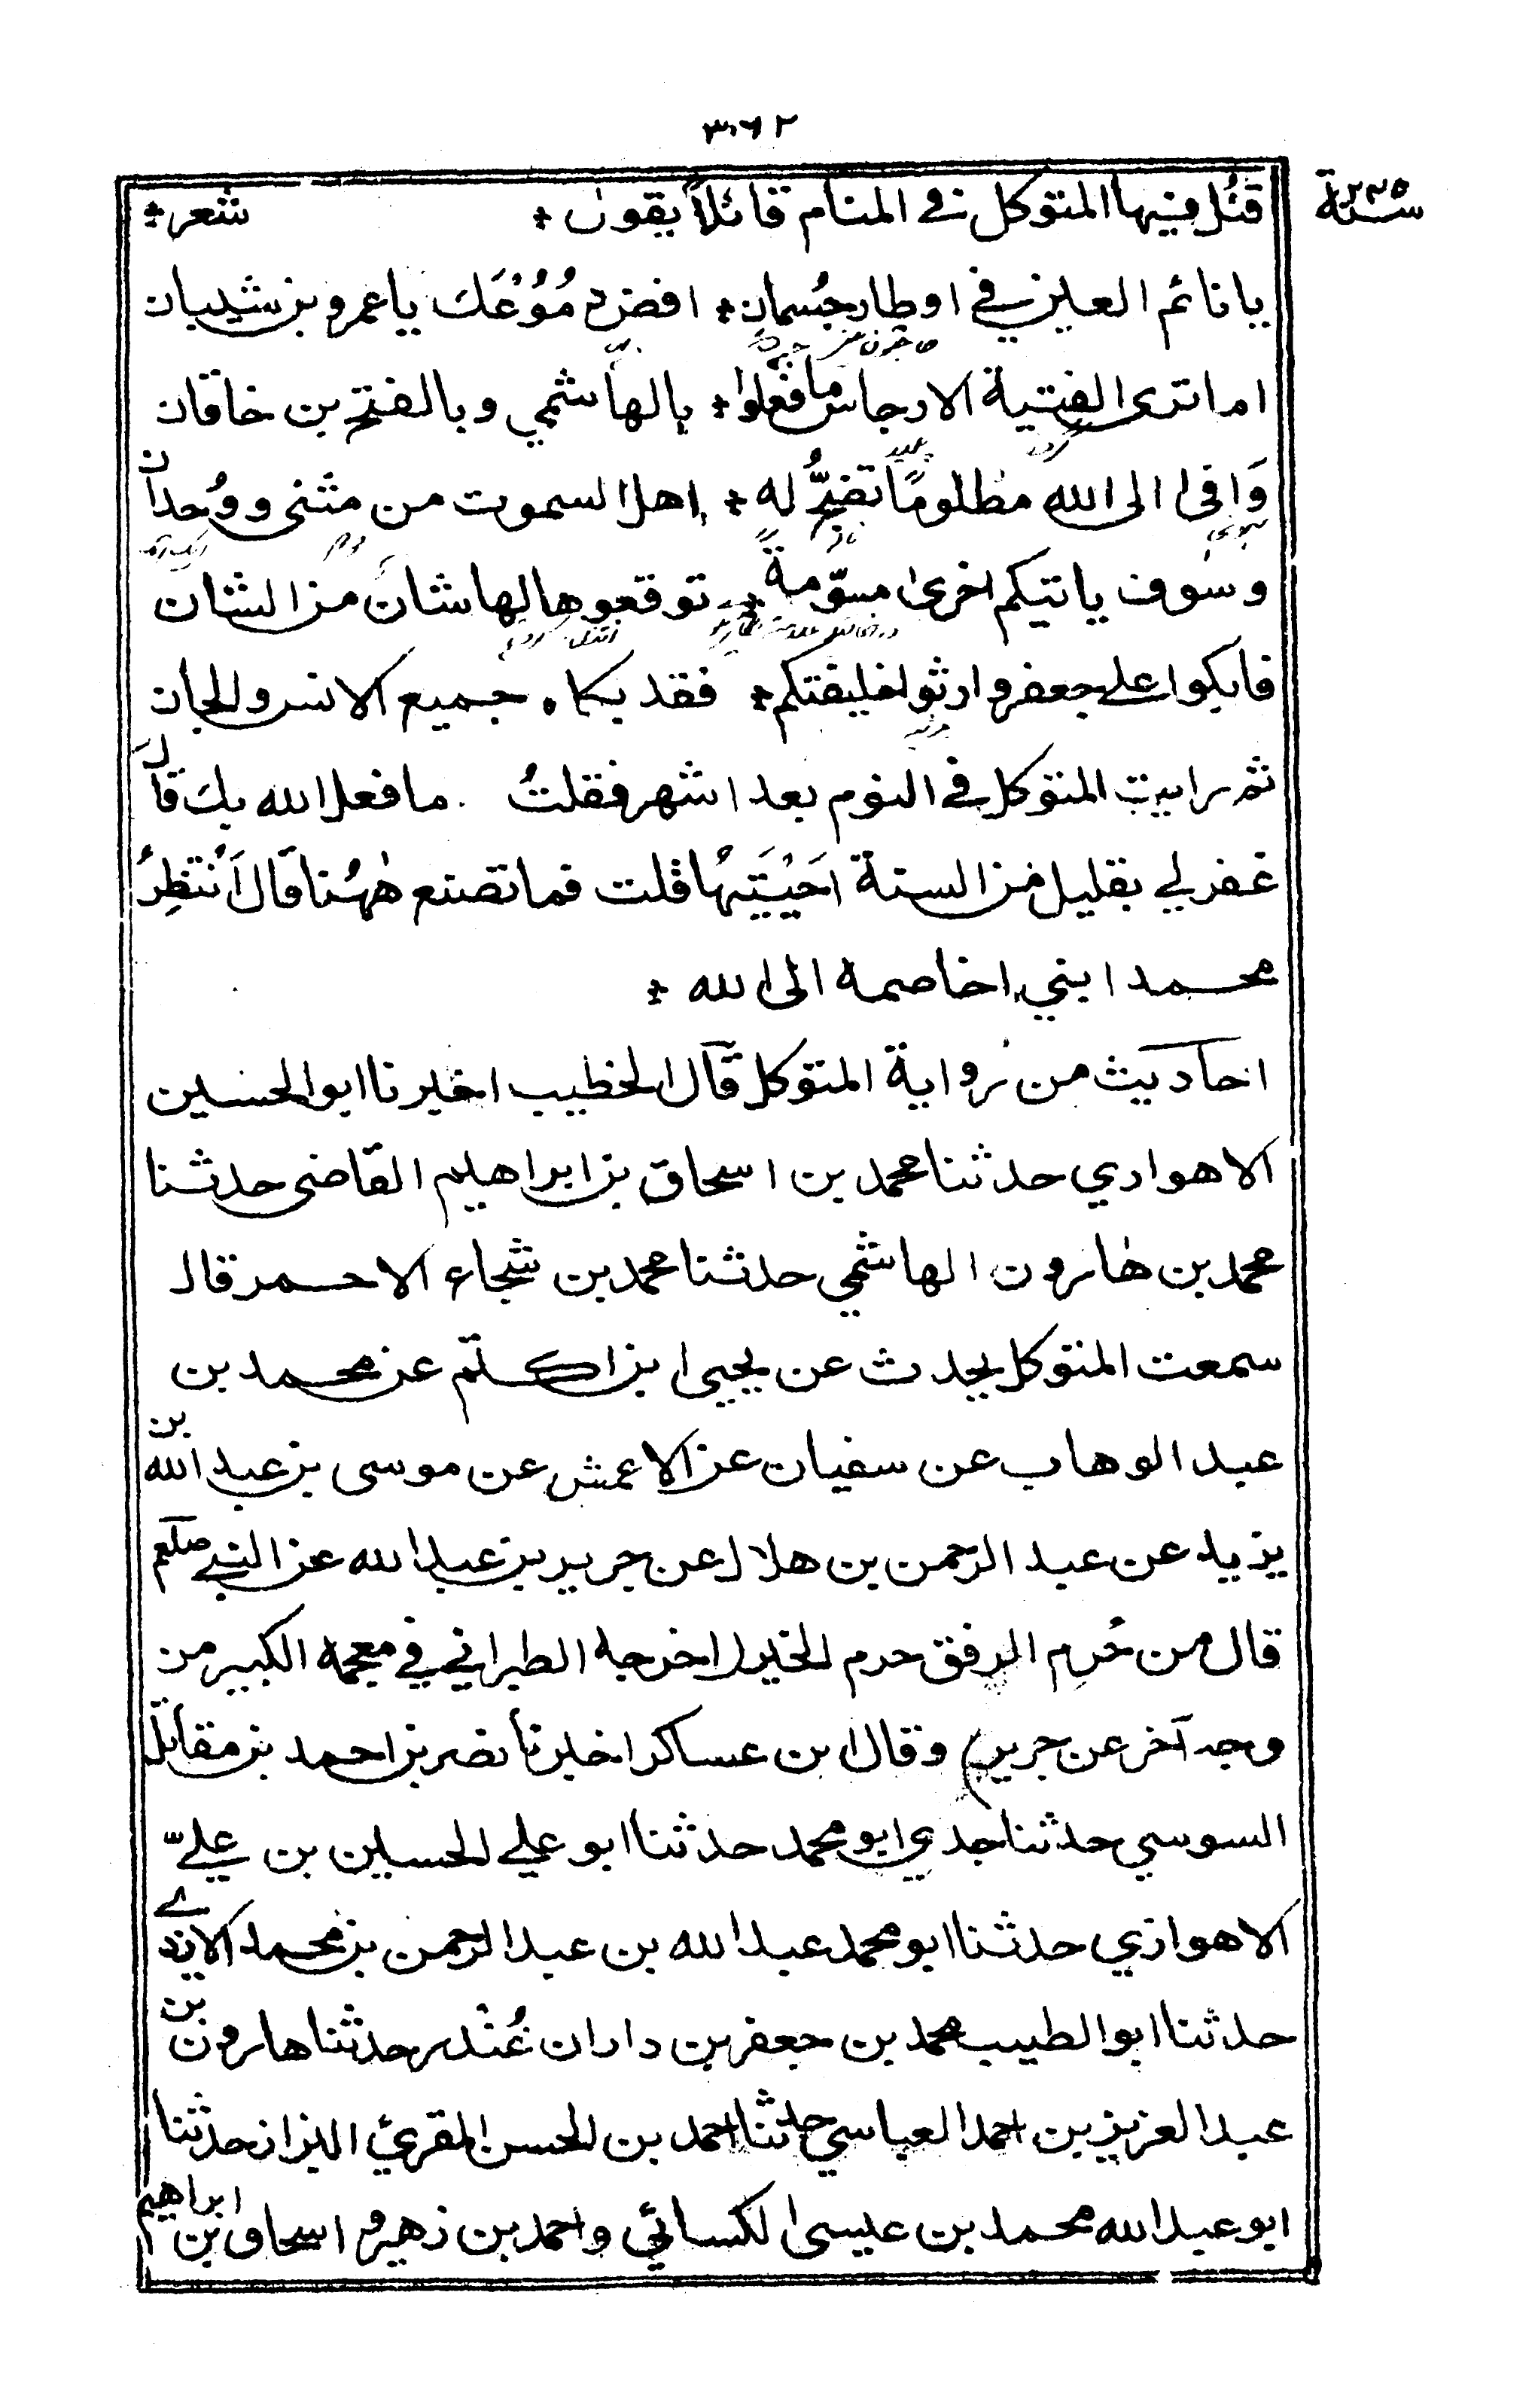 ٣٠٦٢
سنة ٢٣٥
قتل فيها المتوكل في المنام قائلاً يقول * شعر *
يا نائم العين في اوطار جُسمان * افض دموعك يا عمرو بن شيبان
اما ترى الفتية الارجاس ما فعلوا * بالهاشمي وبالفتح بن خاقان
وَافى الى الله مظلومًا تضجُّ له * اهل السموت من مثنى ووُحدان
وسوف ياتيكم اخرى مسوّمةً * توقعوها لها شان من الشان
فابكوا على جعفر وارثوا خليفتكم * فقد بكاه جميع الانس والجان
ثم رايت المتوكل في النوم بعد اشهر فقلتُ ما فعل الله بك قال
غفر لي بقليل من السنة اَحيَيْتَها قلت فما تصنع هٰهُنا قال اَنْتَظِرُ
محمد ابني اخاصمه الى الله *
احاديث من رواية المتوكل قال الخطيب اخبرنا ابو الحسين
الاهوازي حدثنا محمد بن اسحاق بن ابراهيم القاضى حدثنا
محمد بن هٰارون الهاشمي حدثنا محمد بن شجاع الاحمر قال
سمعت المتوكل يحدث عن يحيى ابن اكثم عن محمد بن
عبد الوهاب عن سفيان عن الاعمش عن موسى بن عبد الله بن
يزيد عن عبد الرحمن بن هلال عن جرير بن عبد الله عن النبي صلعم
قال من حُرِم الرفق حرم الخير (اخرجه الطبراني في معجمه الكبير من
وجه آخر عن جرير) وقال ابن عساكر اخبرنا نصر بن احمد بن مقاتل
السوسي حدثنا جدي ابو محمد حدثنا ابو علي الحسين بن عليّ
الاهوازي حدثنا ابو محمد عبد الله بن عبد الرحمن بن محمد الازدي
حدثنا ابو الطيب محمد بن جعفر بن داران غُنْدر حدثنا هارون بن
عبد العزيز بن احمد العباسي حدثنا احمد بن الحسن المقرئ البزاز حدثنا
ابو عبد الله محمد بن عيسى الكسائي واحمد بن زهير واسحاق بن ابراهيم